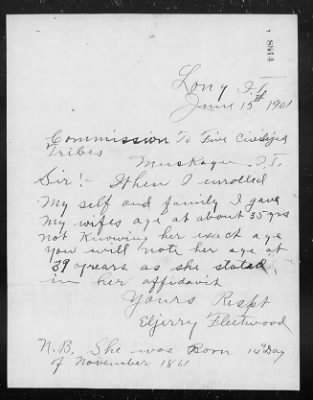 8814
Lony I.T.
June 15th 1901
Commission To Five Civilized
Tribes
Muskogee I.T.
Sir!- When I enrolled
My self and family I gave
My wifes age at about 35 yrs
not Knowing her exact age
you will note her age at
39 years as she stated
in her affidavit
Yours Respt
Eljerry Fleetwood
N.B. She was Born 14th Day
of November 1861